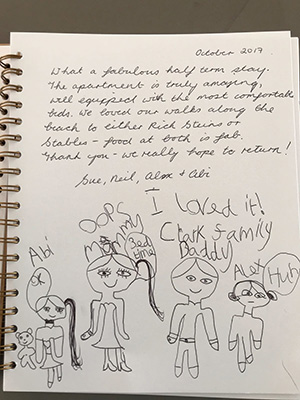 October 2017.
What a fabulous half term stay.
The apartment is truly amazing,
well equipped with the most comfortable
beds. We loved our walks along the
beach to either Rick Steins or
Stables - food at both is fab.
Thank you - we really hope to return!
Sue, Neil, Alex & Abi
I loved it!
Clark family
OOPS
mummy
Bed
time
Daddy
Abi
Alex
Huh